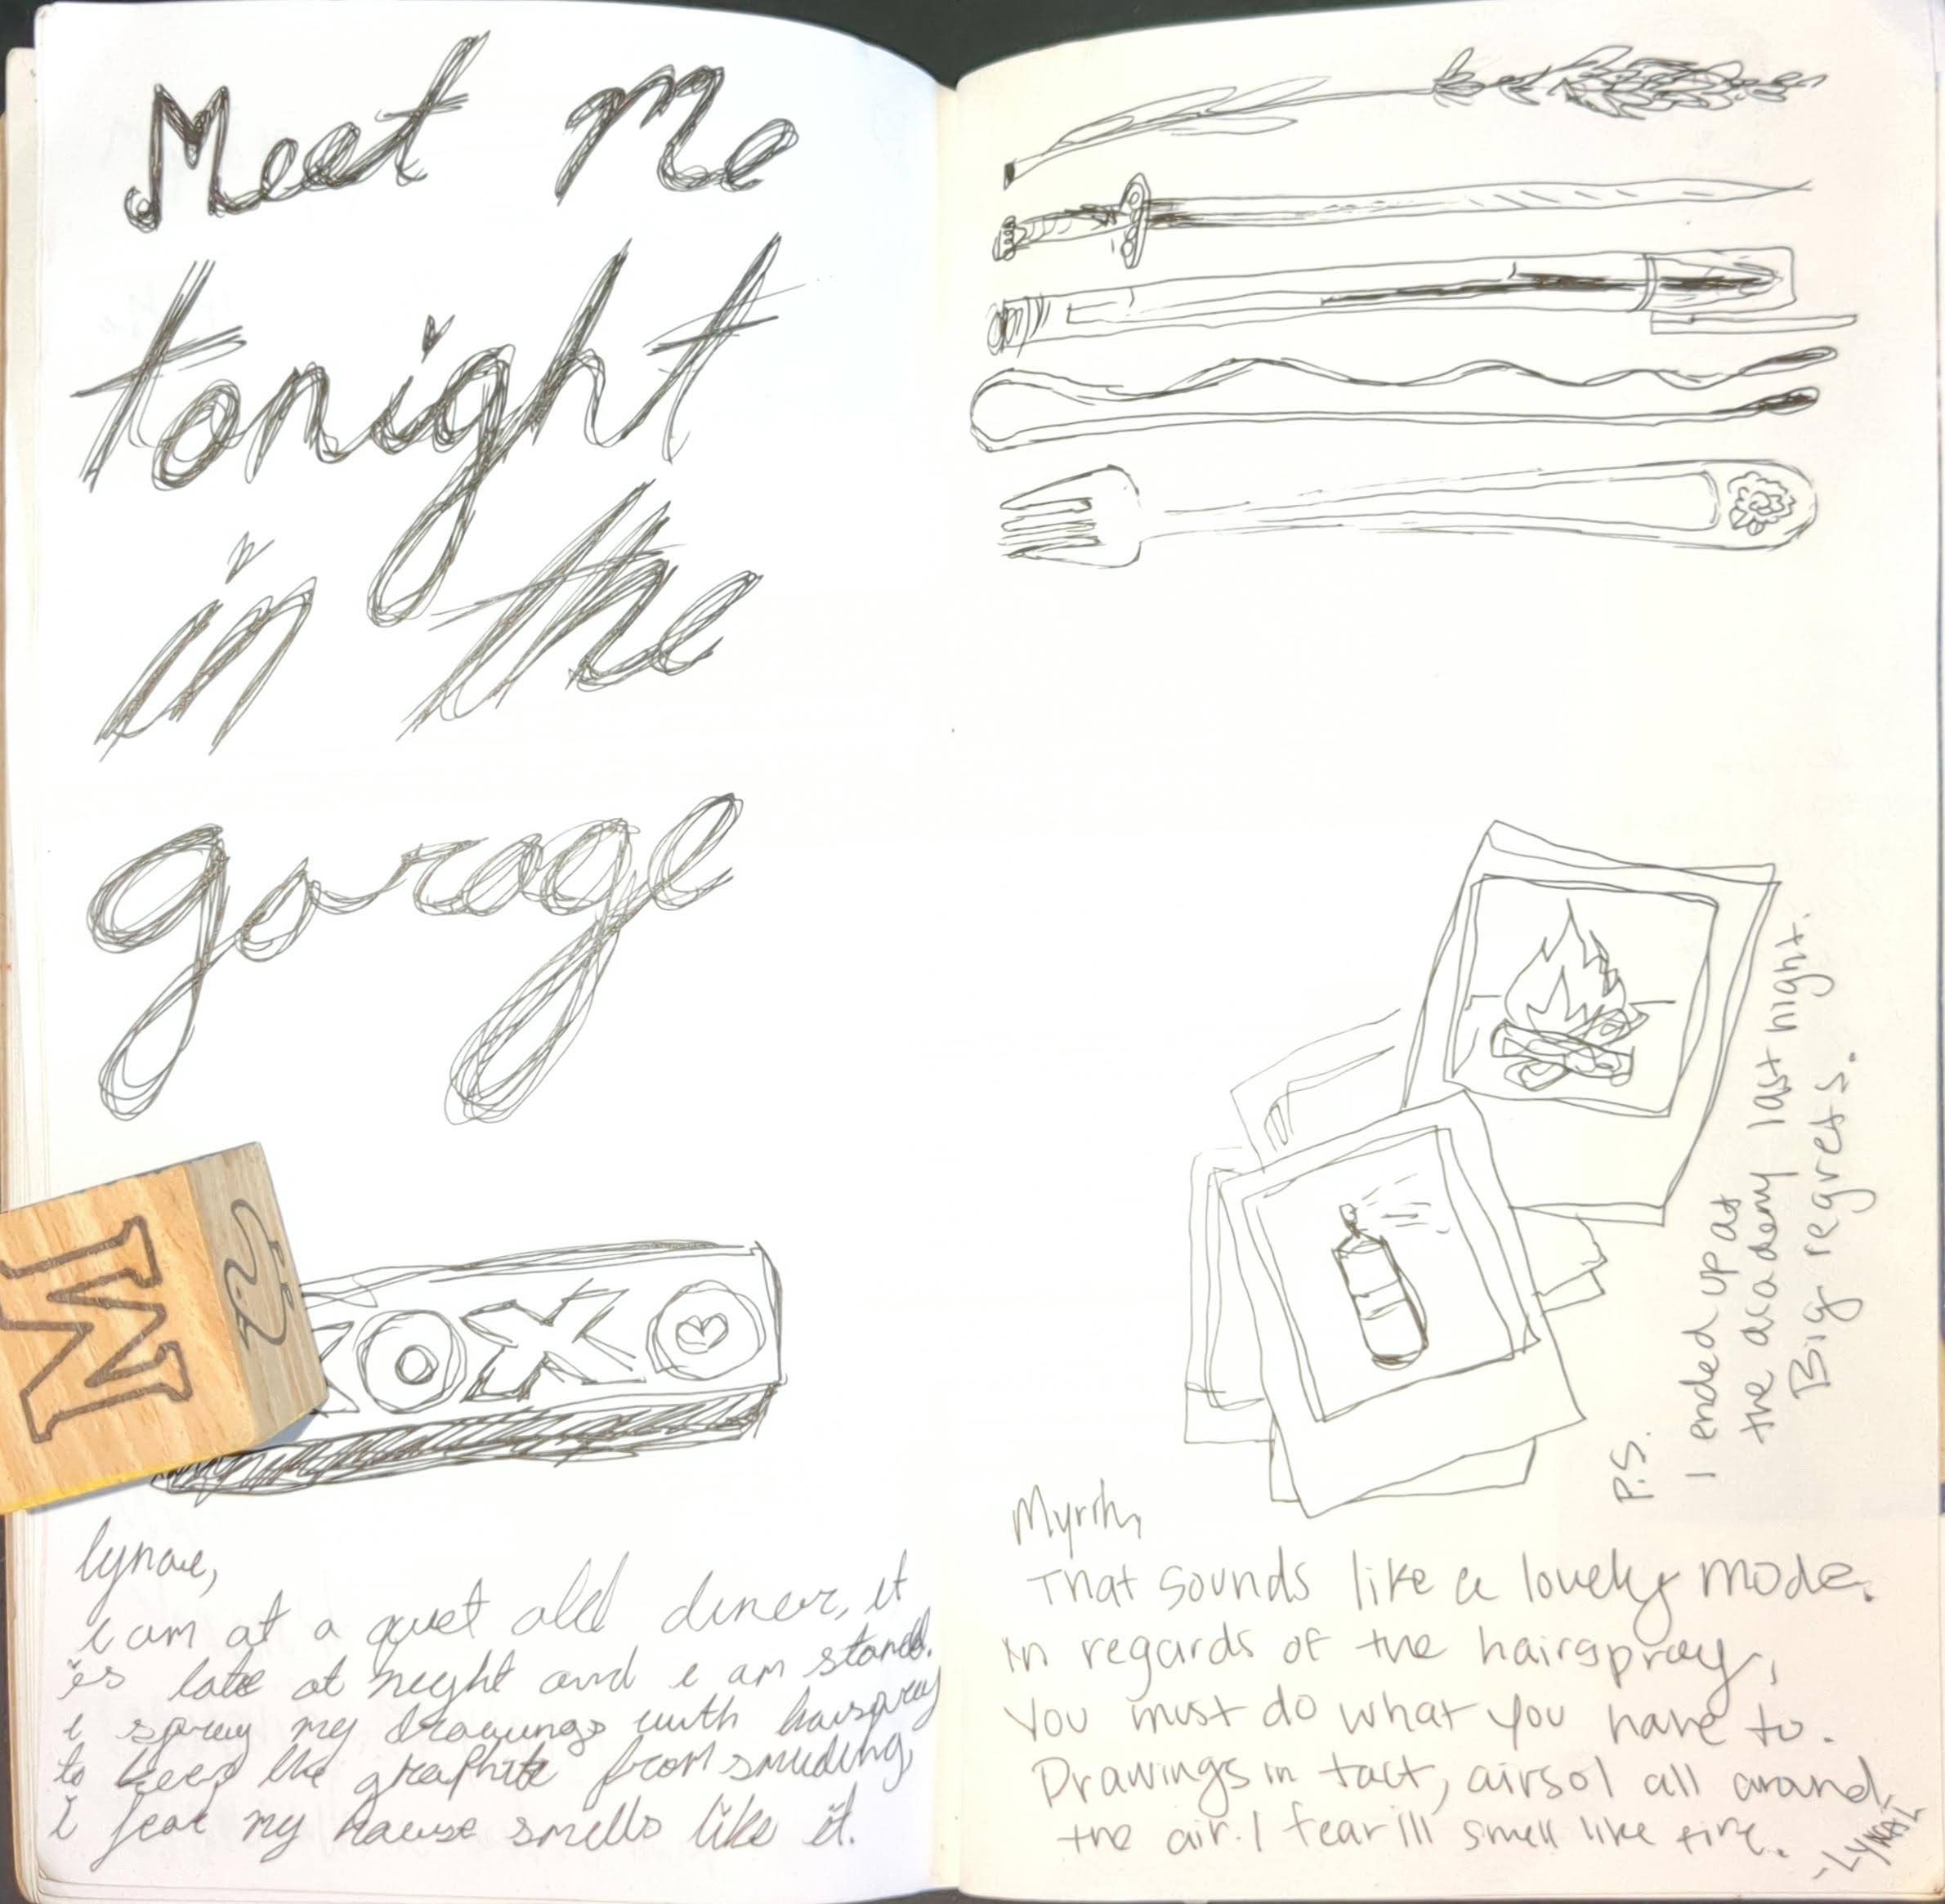 Meet Me
tonight
in the
garage
M
XOX
lynae,
i am at a quiet old diner, it
is late at night and i am
i spray my drawings with hairspray
to keep the graphite from smuding,
i fear my house smells like it.
P.S.
I ended up at
the academy last night.
Big regrets.
Myrrh,
That sounds like a lovely mode.
In regards of the hairspray,
You must do what you have to.
Drawings in tact, airsol all around
the air. I fear ill smell like fire.